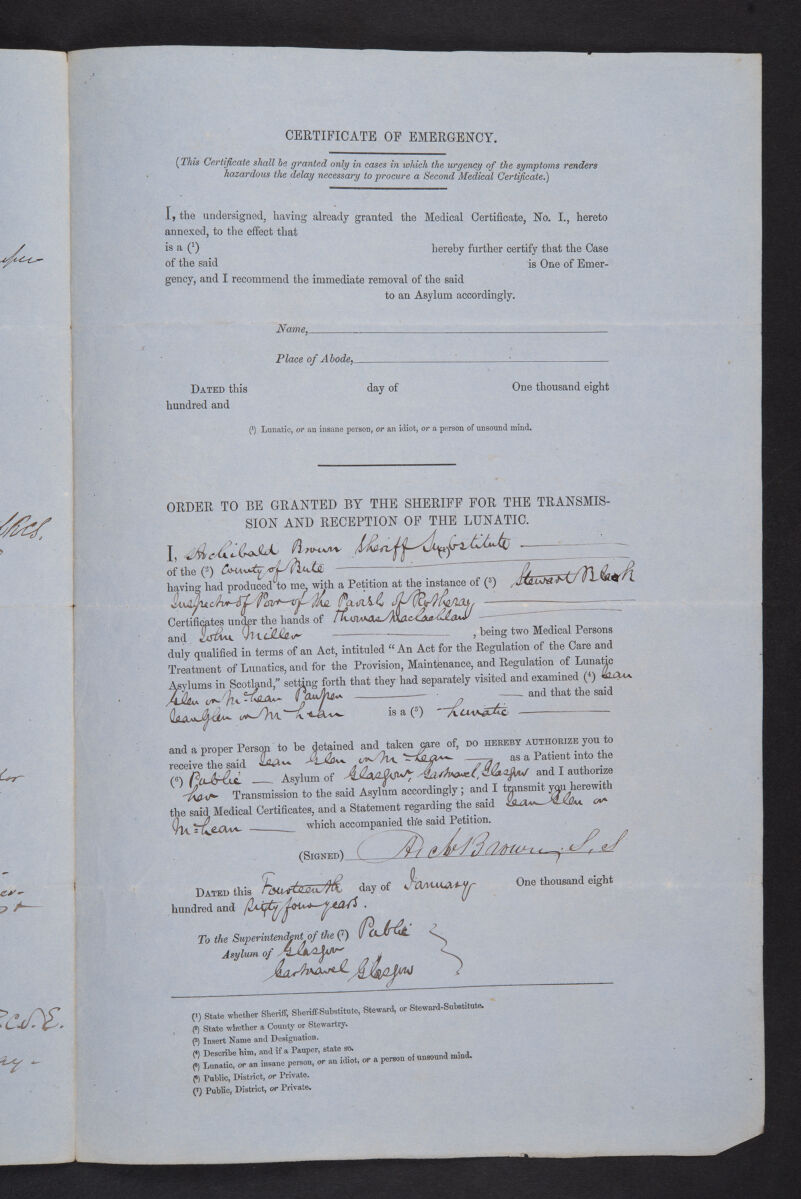 CERTIFICATE OF EMERGENCY.
(This Certificate shall be granted only in cases in which the urgency of the symptoms renders
hazardous the delay necessary to procure a Second Medical Certificate.)
I, the undersigned, having already granted the Medical Certificate, No. I., hereto
annexed, to the effect that
is a (¹) hereby further certify that the Case
of the said is One of Emer-
gency, and I recommend the immediate removal of the said
to an Asylum accordingly.
Name,
Place of Abode,
DATED this day of One thousand eight
hundred and
(¹) Lunatic, or an insane person, or an idiot, or a person of unsound mind.
ORDER TO BE GRANTED BY THE SHERIFF FOR THE TRANSMIS-
SION AND RECEPTION OF THE LUNATIC.
I, Archibald Brown Sheriff Substitute
of the (²) County of Bute
having had produced to me, with a Petition at the instance of (³) Stewart Black
Inspector of Poor of the Parish of Rothesay
Certificates under the hands of Thomas Maclachlan
and John Miller , being two Medical Persons
duly qualified in terms of an Act, intituled “An Act for the Regulation of the Care and
Treatment of Lunatics, and for the Provision, Maintenance, and Regulation of Lunatic
Asylums in Scotland,” setting forth that they had separately visited and examined (⁴) Jean
Glen or McLean Pauper and that the said
Jean Glen or McLean is a (⁵) Lunatic
and a proper Person to be detained and taken care of, DO HEREBY AUTHORIZE you to
receive the said Jean Glen or McLean as a Patient into the
(⁶) Public Asylum of Glasgow, Gartnavel, Glasgow and I authorize
her Transmission to the said Asylum accordingly; and I transmit you herewith
the said Medical Certificates, and a Statement regarding the said Jean Glen or
McLean which accompanied the said Petition.
(SIGNED) Arch Brown, S. S
DATED this Fourteenth day of January One thousand eight
hundred and Sixty four years.
To the Superintendent of the (⁷) Public
Asylum of Glasgow
Gartnavel Glasgow
(¹) State whether Sheriff, Sheriff-Substitute, Steward, or Steward-Substitute.
(²) State whether a County or Stewartry.
(³) Insert Name and Designation.
(⁴) Describe him, and if a Pauper, state so.
(⁵) Lunatic, or an insane person, or an idiot, or a person of unsound mind.
(⁶) Public, District, or Private.
(⁷) Public, District, or Private.